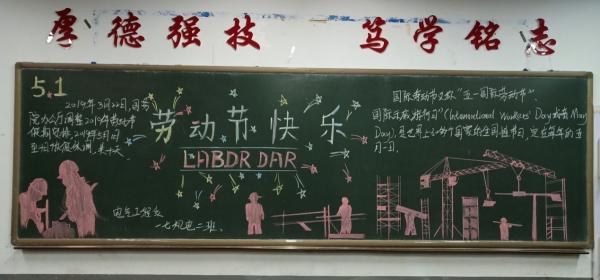 厚德强技 笃学铭志
5.1
2019年3月22日,国务
院办公厅调整2019年劳动节
假期安排,2019年5月1日
至4日放假调休,共4天。
劳动节快乐
LABDR DAR
电气工程系
一七机电二班
国际劳动节又称“五一国际劳动节”、
国际示威游行日”(International Workers' Day或者May
Day),是世界上80多个国家的全国性节日。定在每年的五
月一日。